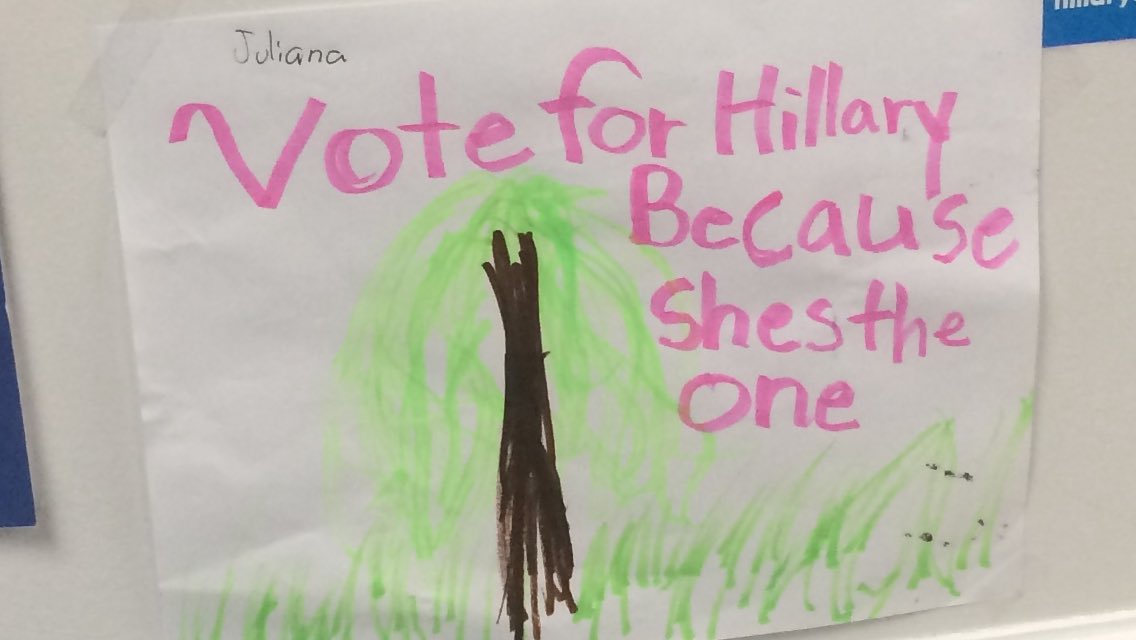 Juliana
Vote for Hillary
Because
shes the
one